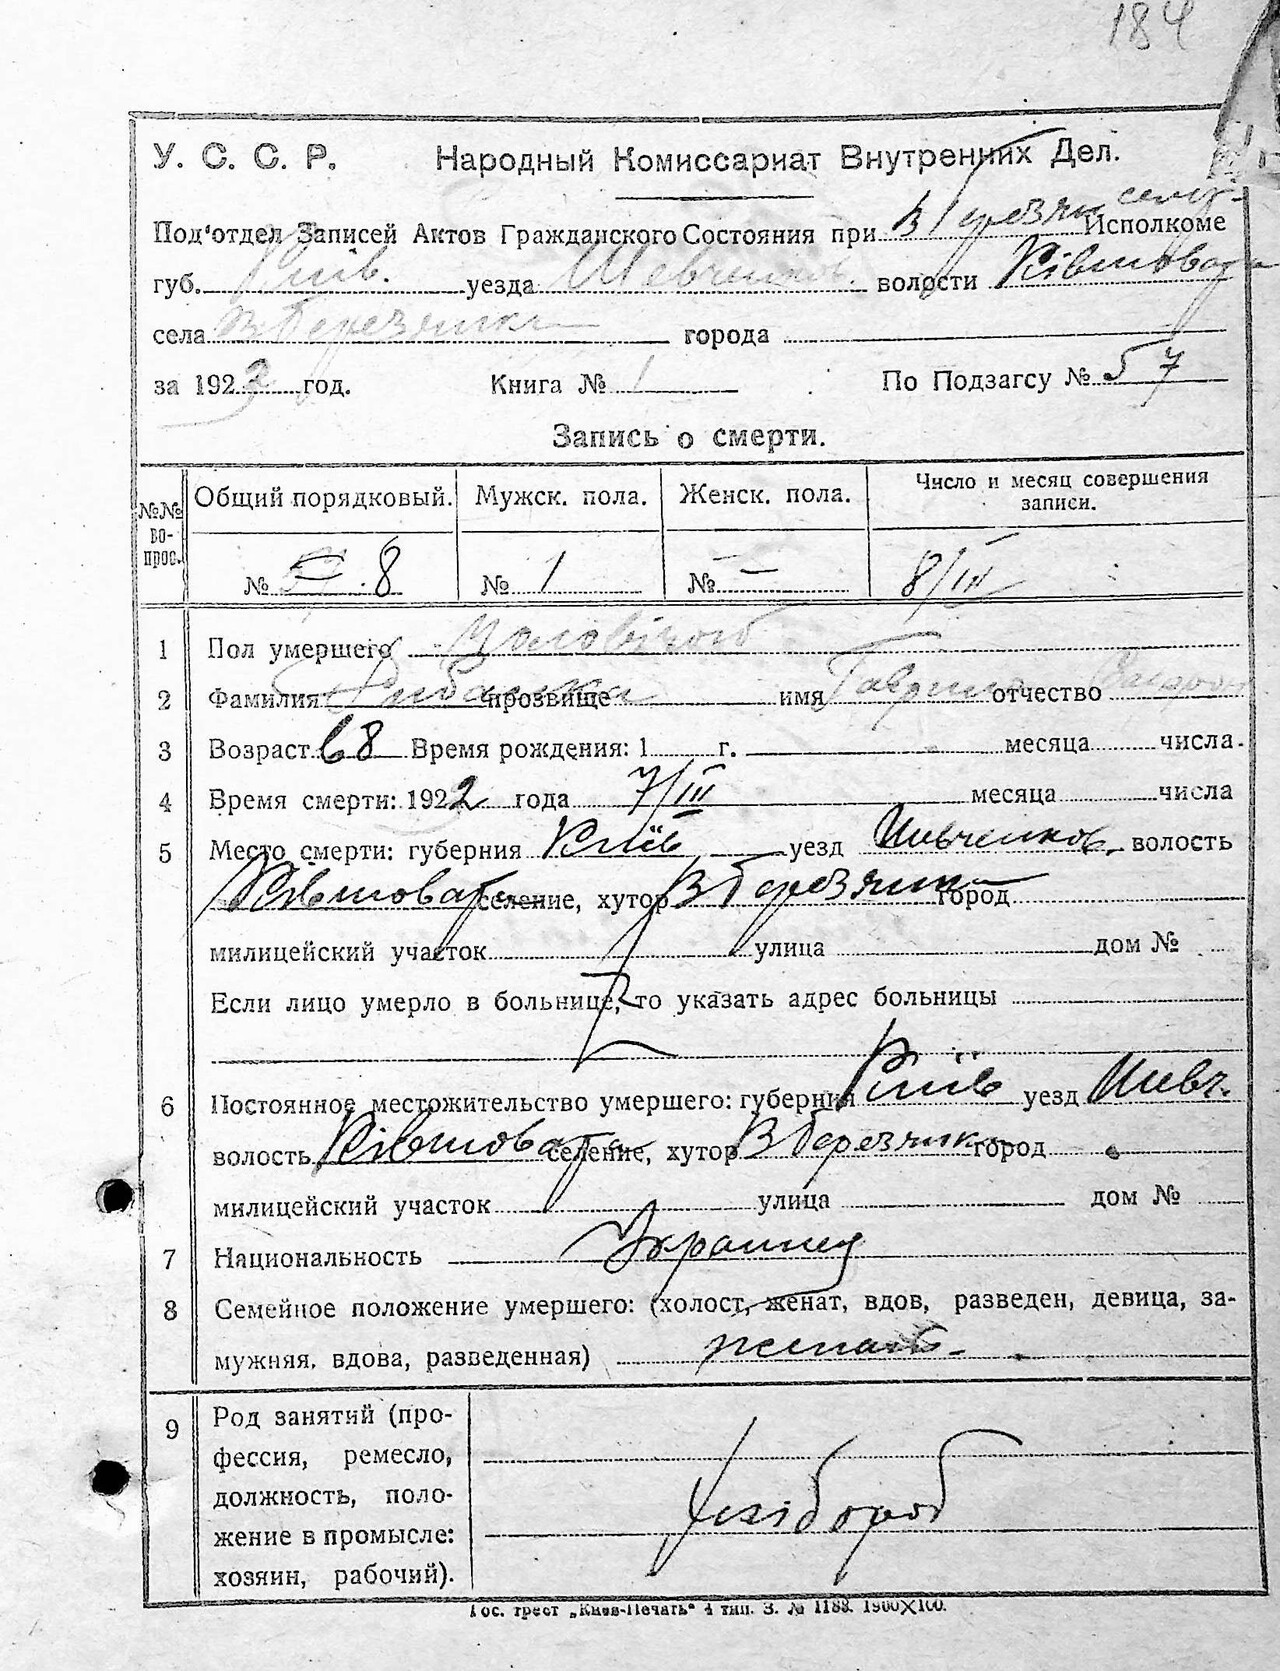 184
У. С. С. Р. Народный Комиссариат Внутренних Дел.
Под'отдел Записей Актов Гражданского Состояния при В Березян. сельск. Исполкоме
губ. Київ. уезда Шевченков. волости Ківшовата
села В Березянка города
за 1922 год. Книга № 1 По Подзагсу № 57
Запись о смерти.
№№ вопрос. Общий порядковый. Мужск. пола. Женск. пола. Число и месяц совершения записи.
№ 8 № 1 № — 8/III
1 Пол умершего Чоловічоб
2 Фамилия Рибалка прозвище имя Гаврило отчество
3 Возраст 68 Время рождения: 1 г. месяца числа.
4 Время смерти: 1922 года 7/III месяца числа
5 Место смерти: губерния Київ уезд Шевченков. волость
Ківшовата селение, хутор В Березянка город
милицейский участок улица дом №
Если лицо умерло в больнице, то указать адрес больницы
6 Постоянное местожительство умершего: губерния Київ уезд Шевч.
волость Ківшовата селение, хутор В Березянка город
милицейский участок улица дом №
7 Национальность Украинец
8 Семейное положение умершего: (холост, женат, вдов, разведен, девица, за-
мужняя, вдова, разведенная) женатъ
9 Род занятий (про-
фессия, ремесло,
должность, поло-
жение в промысле: хлібороб
хозяин, рабочий).
Гос. трест „Киев-Печать" 4 тип. З. № 1188. 1900X100.